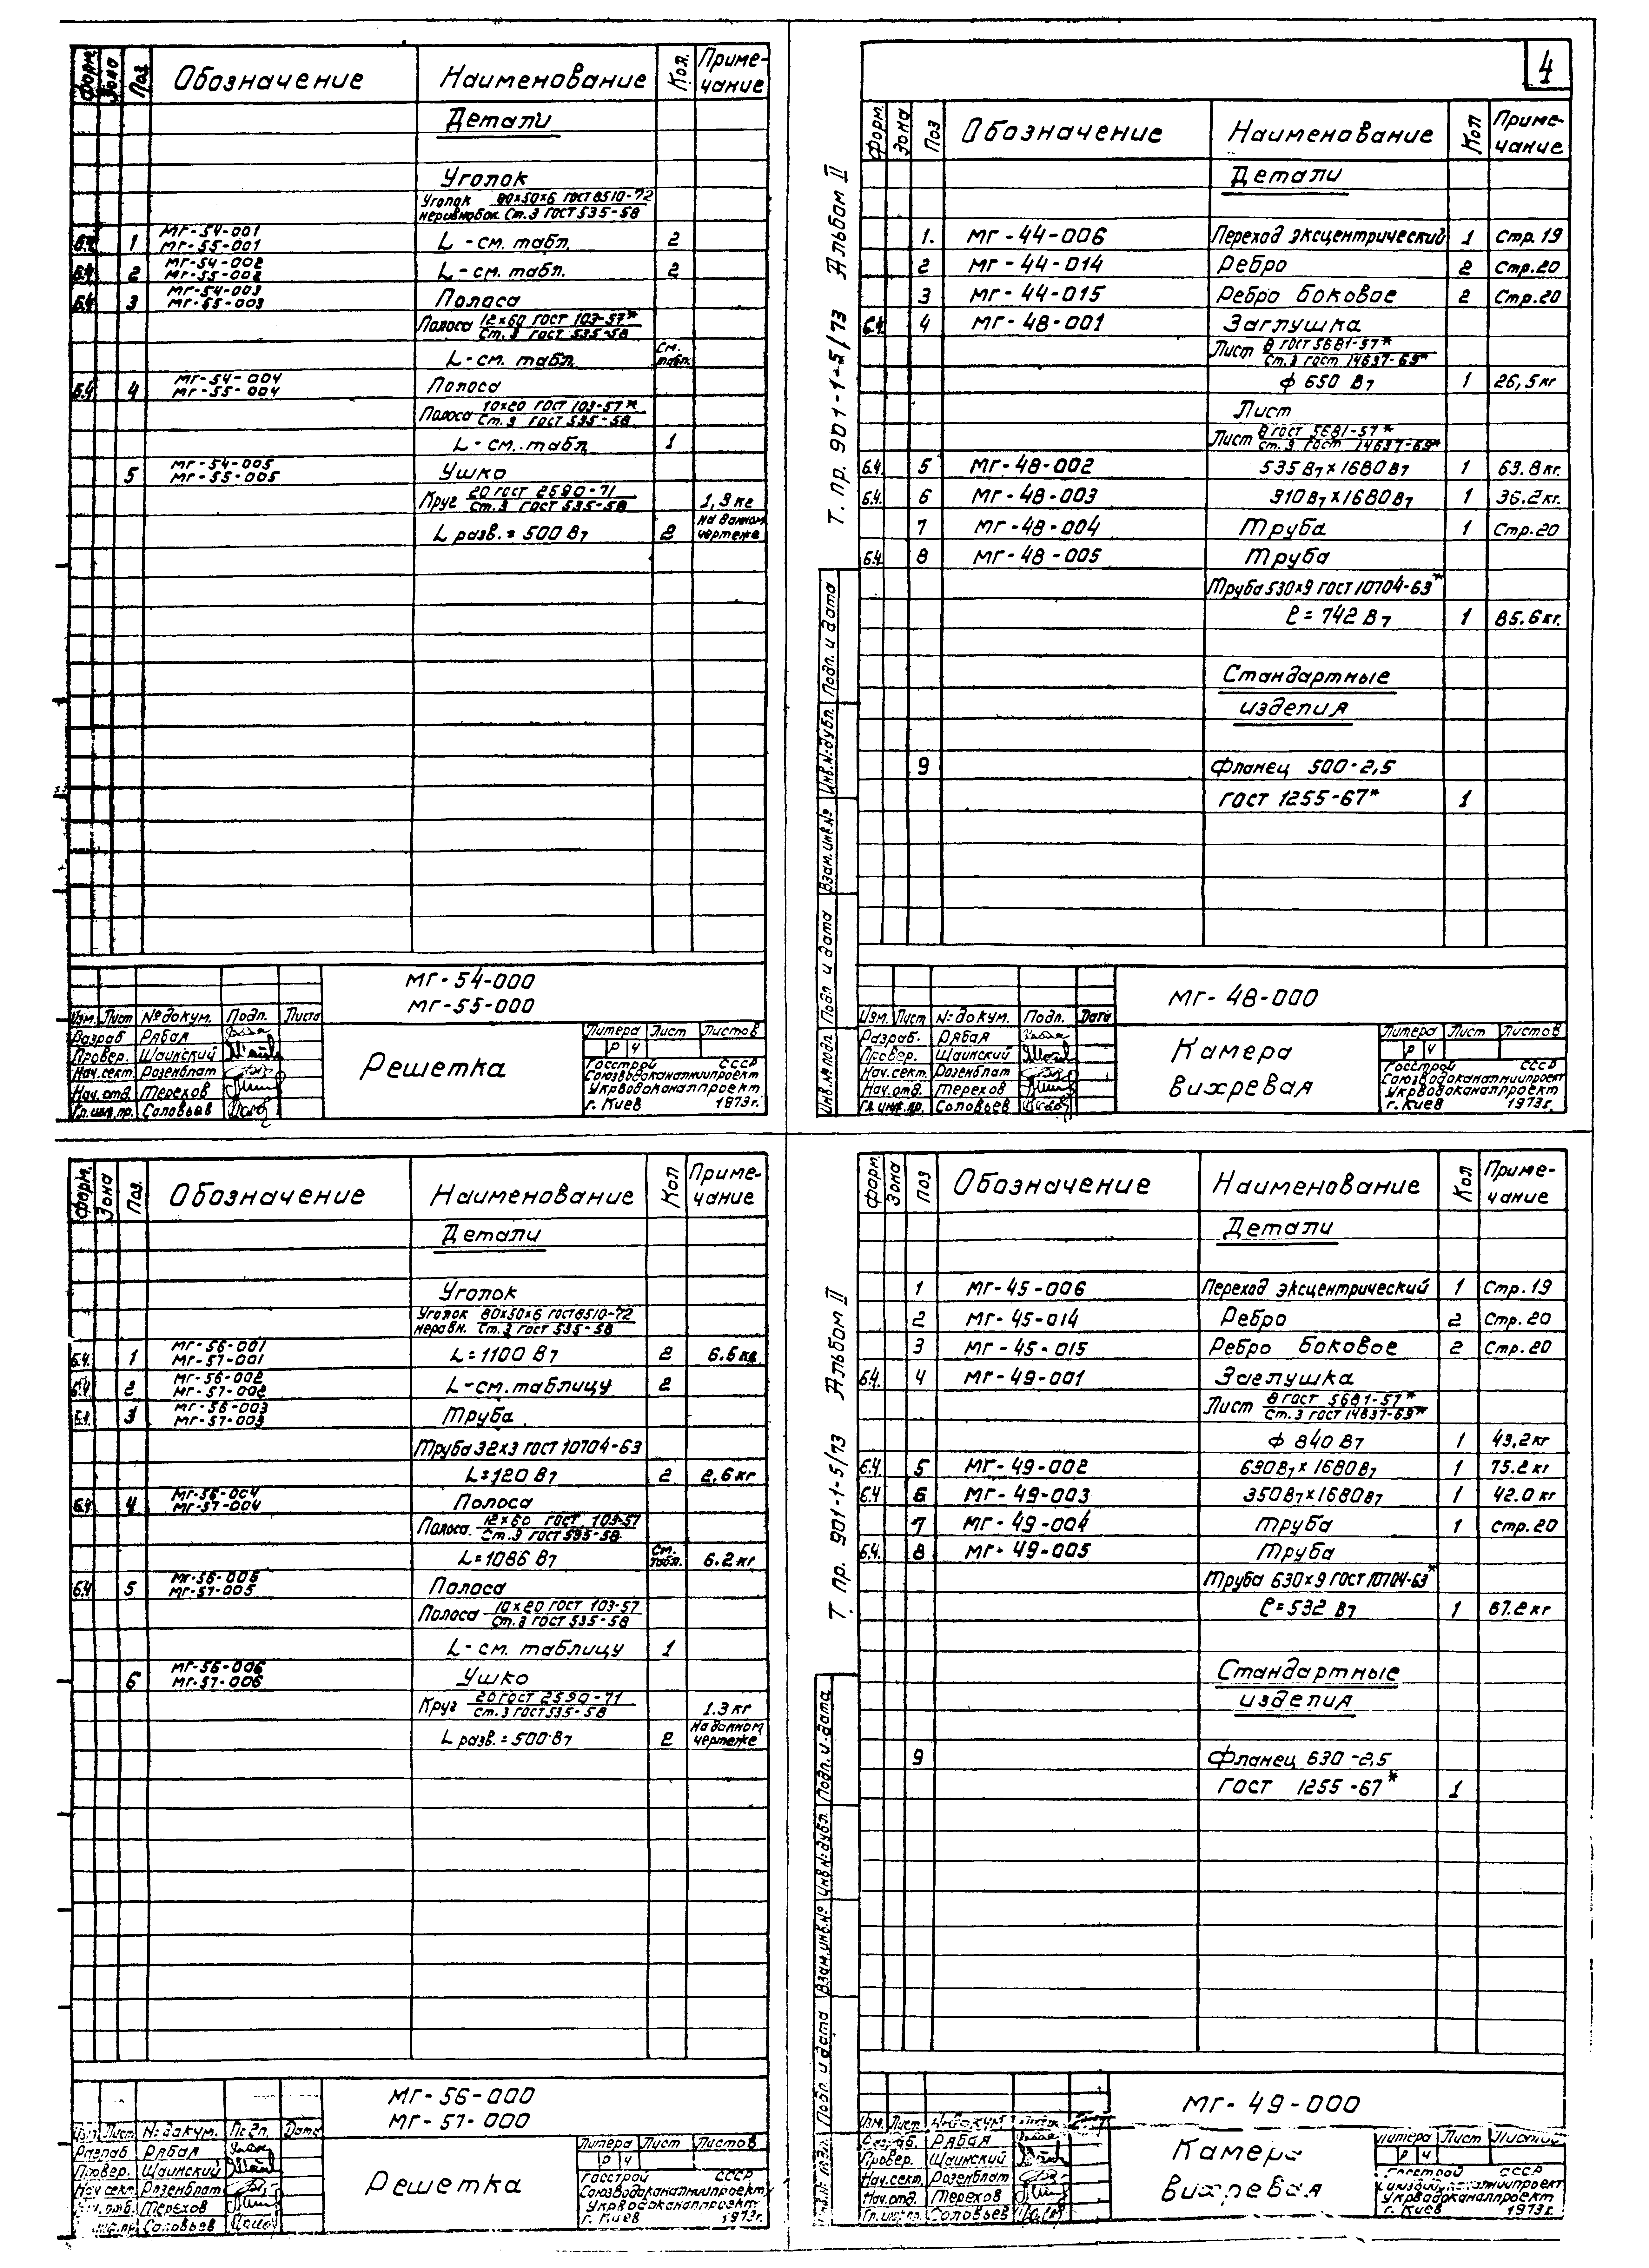 Форм. Зона Поз. Обозначение Наименование Кол. Приме-
чание
Детали
Уголок
Уголок 80×50×6 ГОСТ 8510-72
неравнобок. Ст.3 ГОСТ 535-58
Б.Ч. 1 МГ-54-001 L-см. табл. 2
МГ-55-001
Б.Ч. 2 МГ-54-002 L-см. табл. 2
МГ-55-002
Б.Ч. 3 МГ-54-003 Полоса
МГ-55-003
Полоса 12×60 ГОСТ 103-57*
Ст.3 ГОСТ 535-58
L-см. табл. См. табл.
Б.Ч. 4 МГ-54-004 Полоса
МГ-55-004
Полоса 10×20 ГОСТ 103-57*
Ст.3 ГОСТ 535-58
L-см. табл. 1
5 МГ-54-005 Ушко
МГ-55-005
Круг 20 ГОСТ 2590-71 1,3 кг
Ст.3 ГОСТ 535-58
L разв. = 500 В7 2 на данном
чертеже
МГ-54-000
МГ-55-000
Изм. Лист № докум. Подп. Листа
Разраб. Рябая
Провер. Шаинский
Нач.сект. Розенблат
Нач.отд. Терехов
Гл.инж.пр. Соловьев
Решетка
Литера Лист Листов
Р Ч
Госстрой СССР
Союзводоканалниипроект
Укрводоканалпроект
г. Киев 1973г.
4
Т. пр. 901-1-5/73 Альбом II
Форм. Зона Поз Обозначение Наименование Кол Приме-
чание
Детали
1. МГ-44-006 Переход эксцентрический 1 Стр. 19
2 МГ-44-014 Ребро 2 Стр.20
3 МГ-44-015 Ребро боковое 2 Стр.20
Б.Ч. 4 МГ-48-001 Заглушка
Лист 8 ГОСТ 5681-57*
Ст.3 ГОСТ 14637-69*
ф 650 В7 1 26,5 кг
Лист
Лист 8 ГОСТ 5681-57*
Ст.3 ГОСТ 14637-69*
Б.Ч. 5 МГ-48-002 535 В7×1680 В7 1 63.8 кг.
Б.Ч. 6 МГ-48-003 310 В7×1680 В7 1 36.2 кг.
7 МГ-48-004 Труба 1 Стр.20
Б.Ч. 8 МГ-48-005 Труба
Труба 530×9 ГОСТ 10704-63*
ℓ = 742 В7 1 85.6 кг.
Стандартные
изделия
9 Фланец 500-2,5
ГОСТ 1255-67* 1
Инв.№подл. Подп и дата Взам.инв.№ Инв.№дубл. Подп. и дата
МГ-48-000
Изм. Лист №докум. Подп. Дата
Разраб. Рябая
Провер. Шаинский
Нач.сект. Розенблат
Нач.отд. Терехов
Гл.инж.пр. Соловьев
Камера
вихревая
Литера Лист Листов
Р Ч
Госстрой СССР
Союзводоканалниипроект
Укрводоканалпроект
г. Киев 1973г.
Форм. Зона Поз. Обозначение Наименование Кол Приме-
чание
Детали
Уголок
Уголок 80×50×6 ГОСТ 8510-72
неравн. Ст.3 ГОСТ 535-58
Б.Ч. 1 МГ-56-001 L=1100 В7 2 6.5 кг
МГ-57-001
Б.Ч. 2 МГ-56-002 L-см.таблицу 2
МГ-57-002
Б.Ч. 3 МГ-56-003 Труба
МГ-57-003
Труба 32×3 ГОСТ 10704-63
L=120 В7 2 2,6 кг
Б.Ч. 4 МГ-56-004 Полоса
МГ-57-004
Полоса 12×60 ГОСТ 103-57
Ст.3 ГОСТ 535-58
L=1086 В7 См. табл. 6.2 кг
Б.Ч. 5 МГ-56-005 Полоса
МГ-57-005
Полоса 10×20 ГОСТ 103-57
Ст.3 ГОСТ 535-58
L-см. таблицу 1
6 МГ-56-006 Ушко
МГ-57-006
Круг 20 ГОСТ 2590-71 1.3 кг
Ст.3 ГОСТ 535-58
L разв. = 500 В7 2 На данном
чертеже
МГ-56-000
МГ-57-000
Изм Лист № докум. Подп. Дата
Разраб Рябая
Провер. Шаинский
Нач.сект Розенблат
Нач.отд. Терехов
инж.пр. Соловьев
Решетка
Литера Лист Листов
Р Ч
Госстрой СССР
Союзводоканалниипроект
Укрводоканалпроект
г. Киев 1973г.
Т. пр. 901-1-5/73 Альбом II
Форм. Зона Поз Обозначение Наименование Кол Приме-
чание
Детали
1 МГ-45-006 Переход эксцентрический 1 Стр.19
2 МГ-45-014 Ребро 2 Стр. 20
3 МГ-45-015 Ребро боковое 2 Стр.20
Б.Ч. 4 МГ-49-001 Заглушка
Лист 8 ГОСТ 5681-57*
Ст.3 ГОСТ 14637-69*
ф 840 В7 1 43,2 кг
Б.Ч. 5 МГ-49-002 630 В7×1680 В7 1 75.2 кг
Б.Ч 6 МГ-49-003 350 В7×1680 В7 1 42.0 кг
7 МГ-49-004 Труба 1 Стр.20
Б.Ч. 8 МГ-49-005 Труба
Труба 630×9 ГОСТ 10704-63*
ℓ=532 В7 1 87.2 кг
Стандартные
изделия
9 Фланец 630-2,5
ГОСТ 1255-67* 1
Подп. и дата Взам.инв.№ Инв.№дубл. Подп. и дата
МГ-49-000
Изм. Лист № докум.
Разраб. Рябая
Провер. Шаинский
Нач.сект. Розенблат
Нач.отд. Терехов
Гл.инж.пр. Соловьев
Камера
вихревая
Литера Лист Листов
Р Ч
Госстрой СССР
Союзводоканалниипроект
Укрводоканалпроект
г. Киев 1973г.